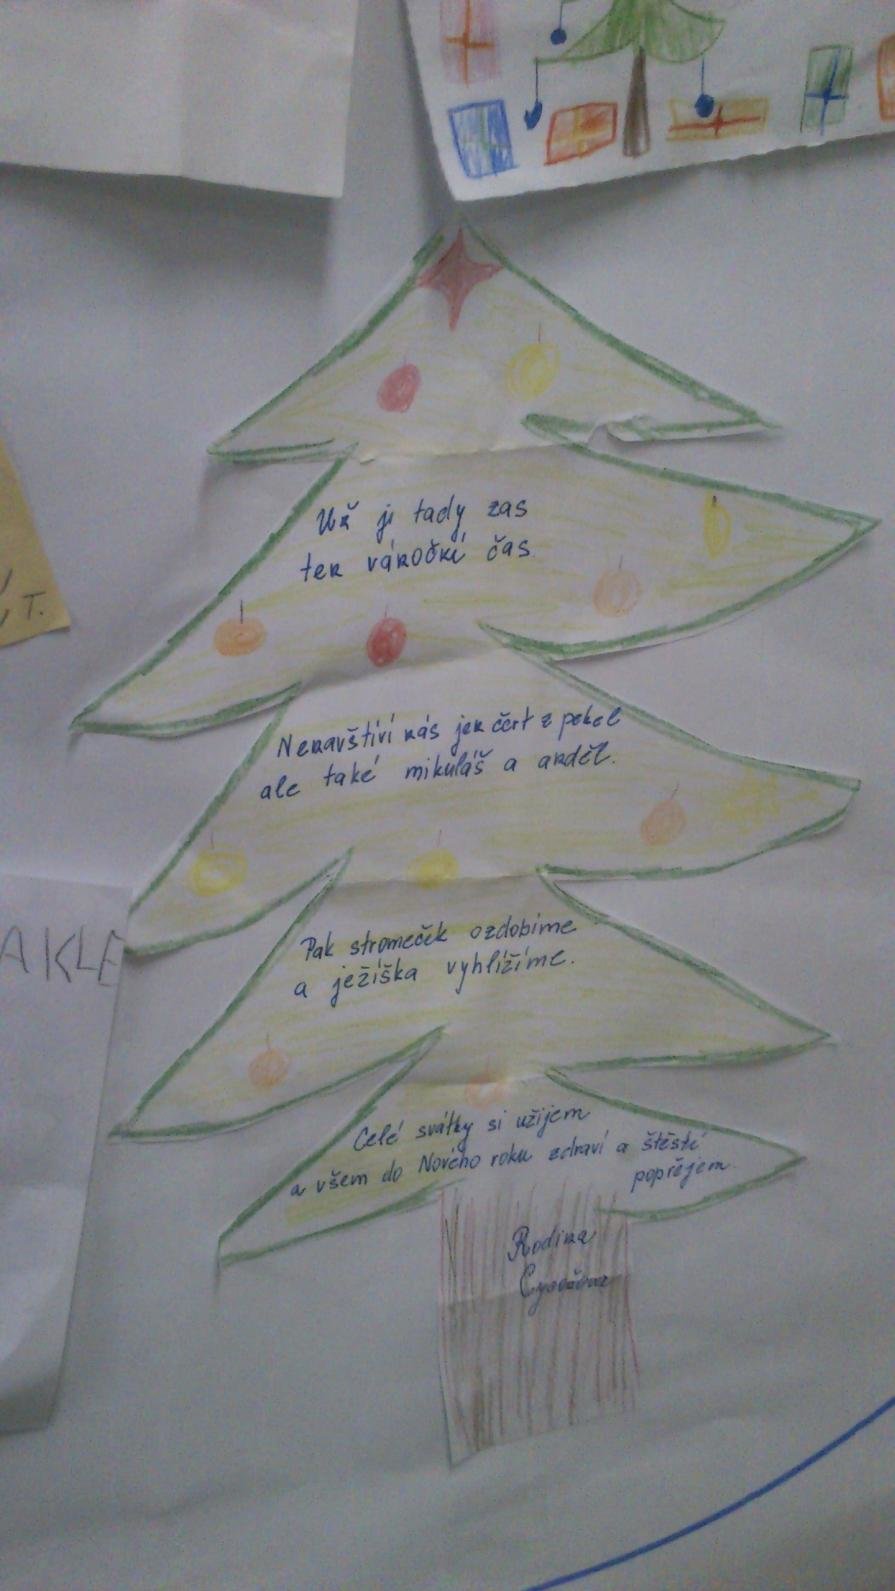 Už je tady zas
ten vánoční čas.
Nenavštíví nás jen čert z pekel
ale také mikuláš a anděl.
Pak stromeček ozdobíme
a ježíška vyhlížíme.
Celé svátky si užijem
a všem do Nového roku zdraví a štěstí
popřejem.
Rodina
AKLE
T.